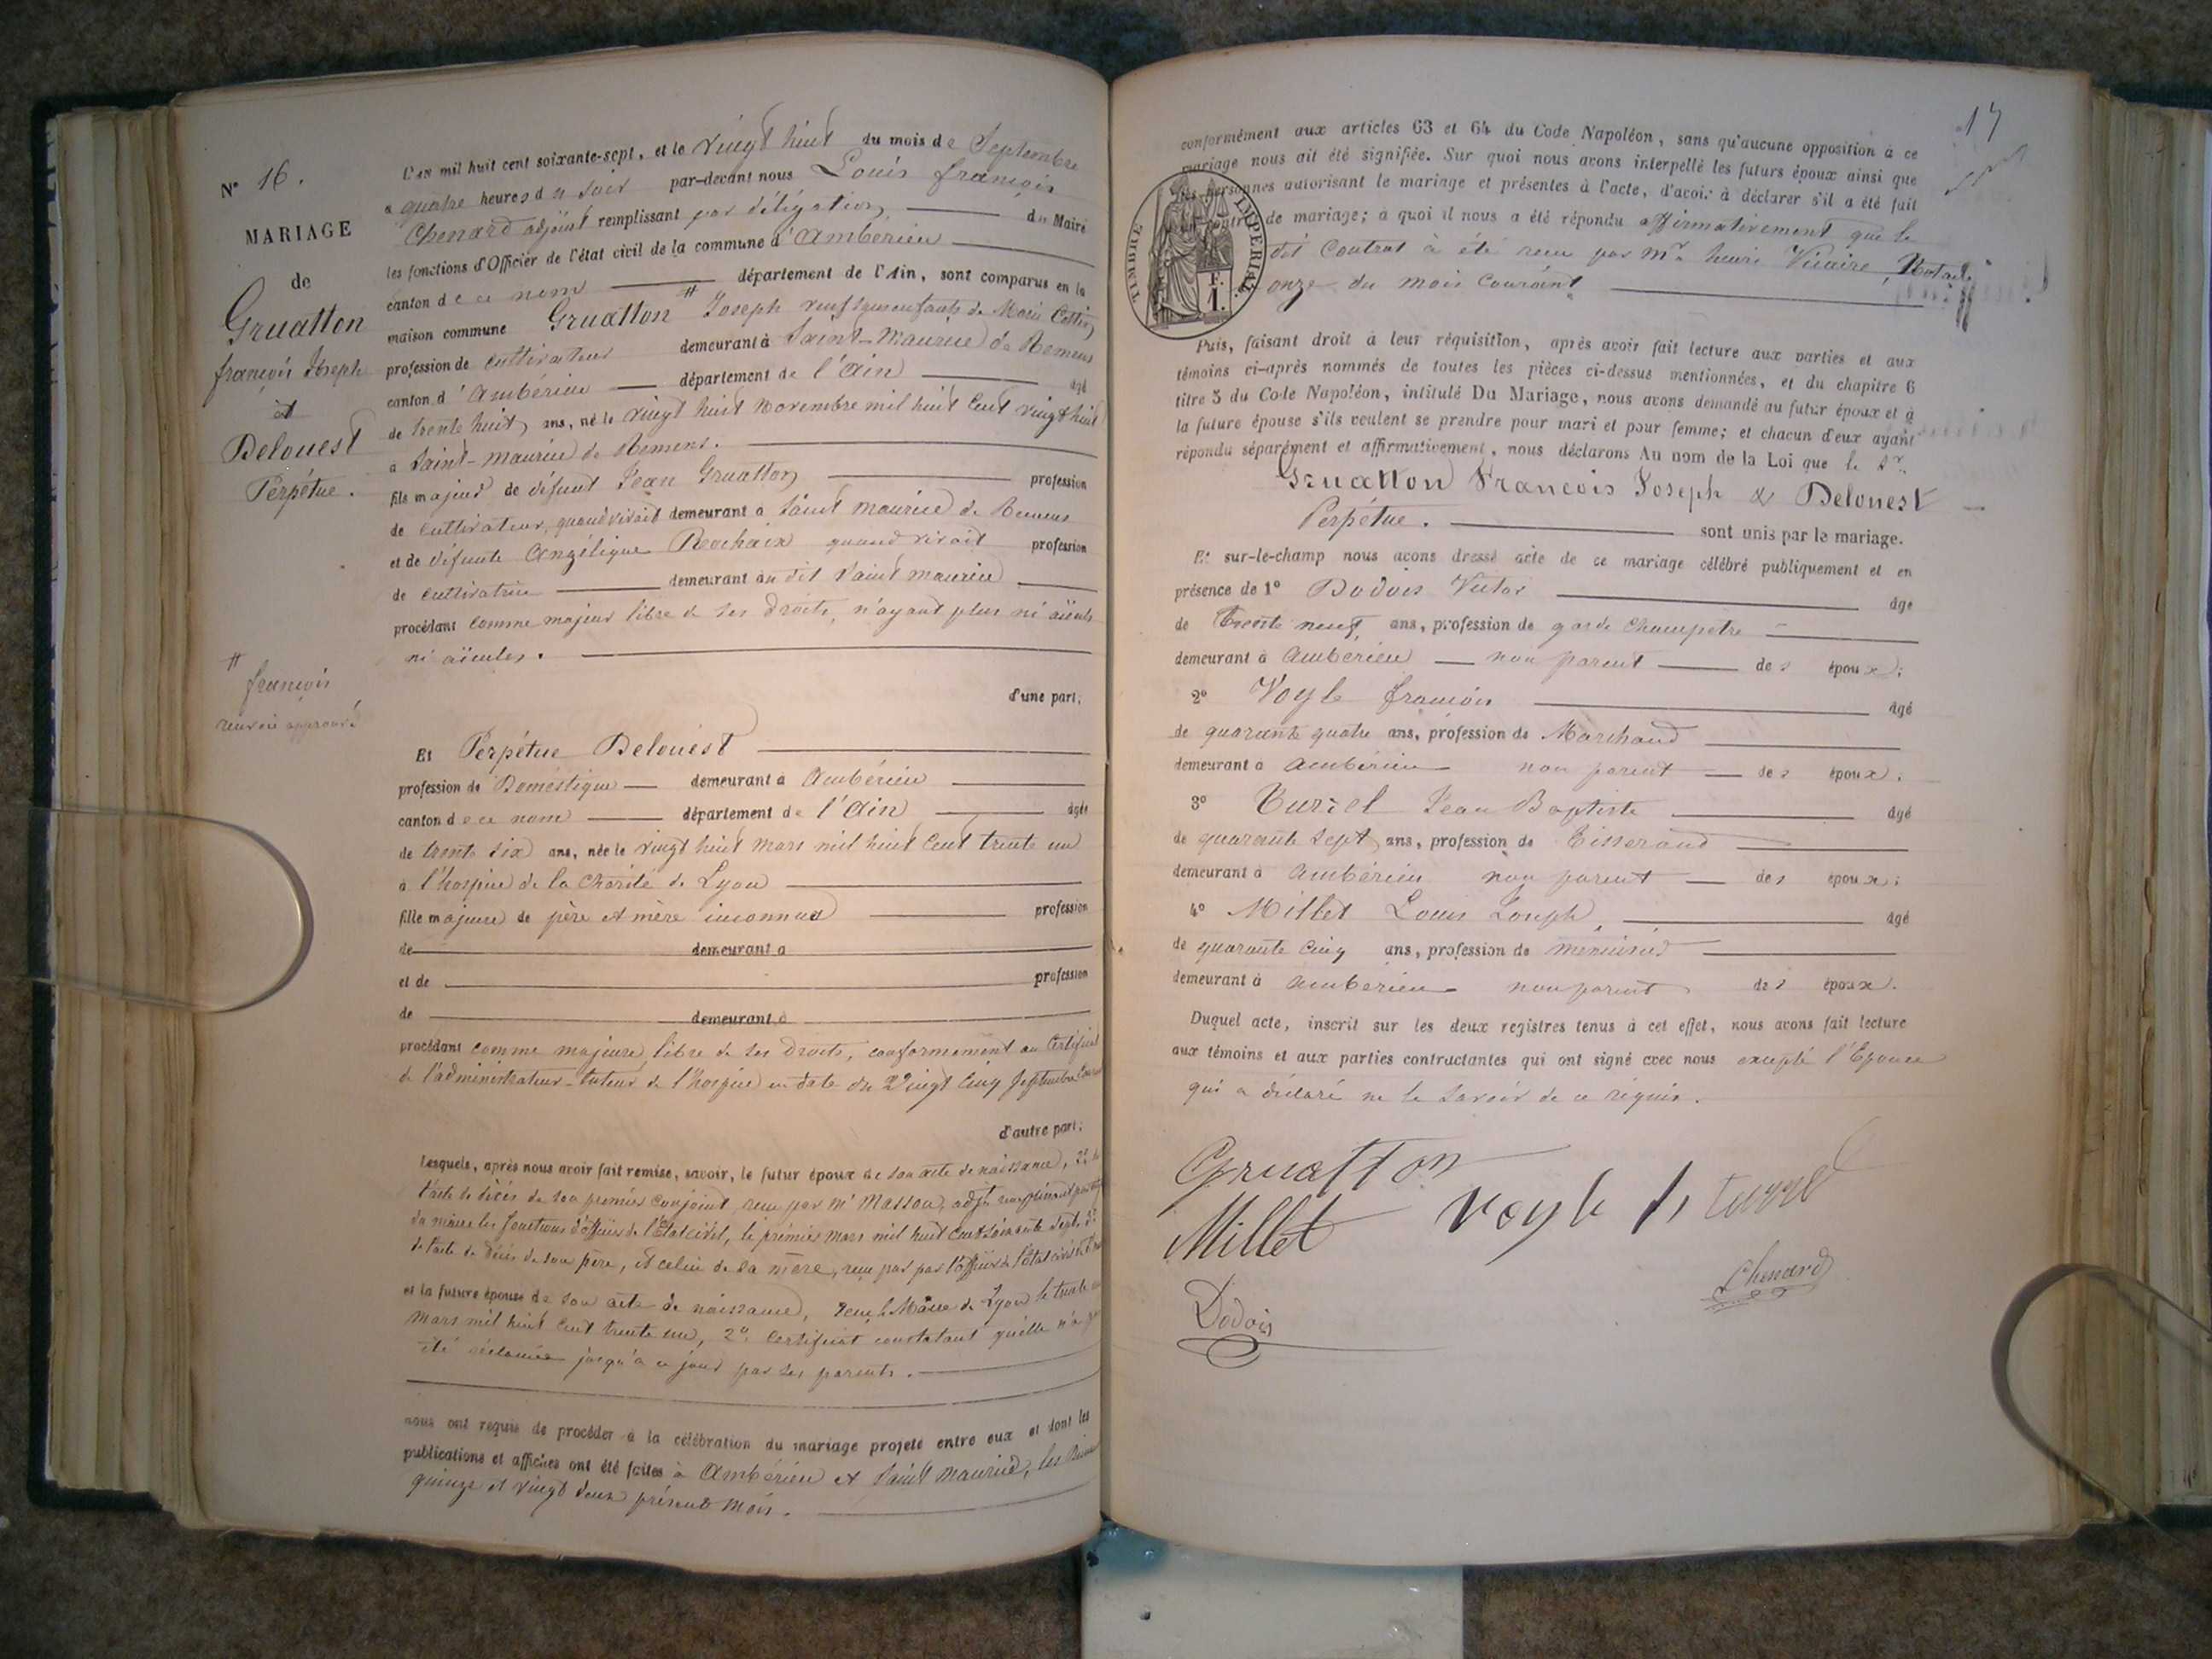 N° 16.
MARIAGE
de
Gruatton
françois Joseph
et
Delouest
Perpétue.
L'an mil huit cent soixante-sept, et le vingt huit du mois de Septembre
a quatre heures du soir par-devant nous Louis françois
Chenard adjoint remplissant par délégation du Maire
les fonctions d'Officier de l'état civil de la commune d'ambérieu
canton de ce nom département de l'Ain, sont comparus en la
maison commune Gruatton # Joseph veuf sans enfants de Marie
profession de cultivateur demeurant à Saint-Maurice de Remens
canton d'ambérieu département de l'ain âgé
de trente huit ans, né le vingt huit novembre mil huit cent vingt huit
a Saint-maurice de Remens.
fils majeur de défunt Jean Gruatton profession
de cultivateur, quand vivait demeurant a Saint maurice de Remens
et de défunte angélique Rochaix quand vivait profession
de cultivatrice demeurant au dit Saint maurice
procédant comme majeur libre de ses droits, n'ayant plus ni aïeuls
ni aïeules.
# françois
renvoi approuvé
d'une part;
Et Perpétue Delouest
profession de Doméstique demeurant à ambérieu
canton de ce nom département de l'ain âgée
de trente six ans, née le vingt huit mars mil huit cent trente un
à l'hospice de la charité de Lyon
fille majeure de père et mère inconnus profession
de demeurant a
et de profession
de demeurant à
procédant comme majeure libre de ses droits, conformément au certificat
de l'administrateur-tuteur de l'hospice en date du vingt cinq septembre
d'autre part;
Lesquels, après nous avoir fait remise, savoir, le futur époux de son acte de naissance, 2° de
l'acte de décès de son premier conjoint, reçu par Mr Masson, adjt
du maire les fonctions d'officier de l'État civil, le premier mars mil huit cent soixante sept,
de l'acte de décès de son père, et celui de sa mère, reçu par l'officier de l'État civil
et la future épouse de son acte de naissance, reçu Maire de Lyon le trente
mars mil huit cent trente un, 2° certificat constatant qu'elle n'a
été réclamée jusqu'à ce jour par ses parents.
nous ont requis de procéder à la célébration du mariage projeté entre eux et dont les
publications et affiches ont été faites à ambérieu et Saint maurice, les
quinze et vingt deux présent mois.
17
conformément aux articles 63 et 64 du Code Napoléon, sans qu'aucune opposition à ce
mariage nous ait été signifiée. Sur quoi nous avons interpellé les futurs époux ainsi que
les personnes autorisant le mariage et présentes à l'acte, d'avoir à déclarer s'il a été fait
contrat de mariage; à quoi il nous a été répondu affirmativement que le
dit contrat à été reçu par Me henri Vicaire, Notaire
onze du mois courant
TIMBRE IMPERIAL
F.
1.
Puis, faisant droit à leur réquisition, après avoir fait lecture aux parties et aux
témoins ci-après nommés de toutes les pièces ci-dessus mentionnées, et du chapitre 6
titre 5 du Code Napoléon, intitulé Du Mariage, nous avons demandé au futur époux et à
la future épouse s'ils veulent se prendre pour mari et pour femme; et chacun d'eux ayant
répondu séparément et affirmativement, nous déclarons Au nom de la Loi que le Sr
Gruatton François Joseph & Delouest
Perpétue. sont unis par le mariage.
Et sur-le-champ nous avons dressé acte de ce mariage célébré publiquement et en
présence de 1° Dodois Victor âge
de Trente neuf ans, profession de garde champetre
demeurant à ambérieu non parent des époux;
2° Voyle françois âgé
de quarante quatre ans, profession de Marchand
demeurant à ambérieu non parent des époux.
3° Turrel Jean Baptiste âgé
de quarante sept ans, profession de Tisserand
demeurant à ambérieu non parent des époux;
4° Millet Louis Joseph âgé
de quarante cinq ans, profession de menuisier
demeurant à ambérieu non parent des époux.
Duquel acte, inscrit sur les deux registres tenus à cet effet, nous avons fait lecture
aux témoins et aux parties contractantes qui ont signé avec nous excepté l'Epouse
qui a déclaré ne le savoir de ce requis.
Gruatton
Millet voyle
Chenard
Dodois